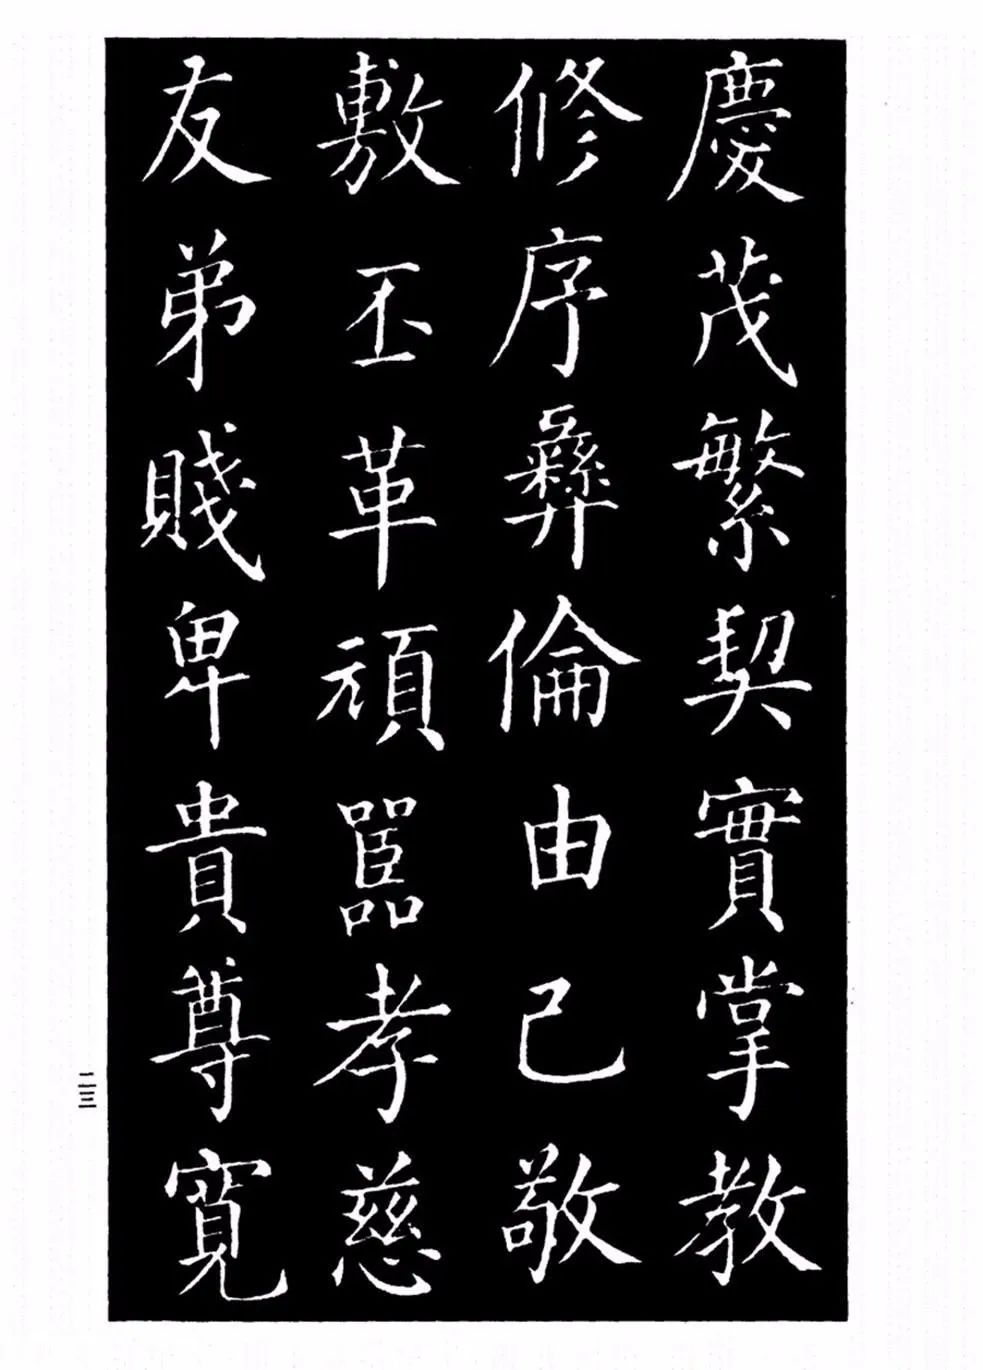 慶茂繁契實掌教
修序彝倫由己敬
敷丕革頑嚚孝慈
友弟賤卑貴尊寬
二三